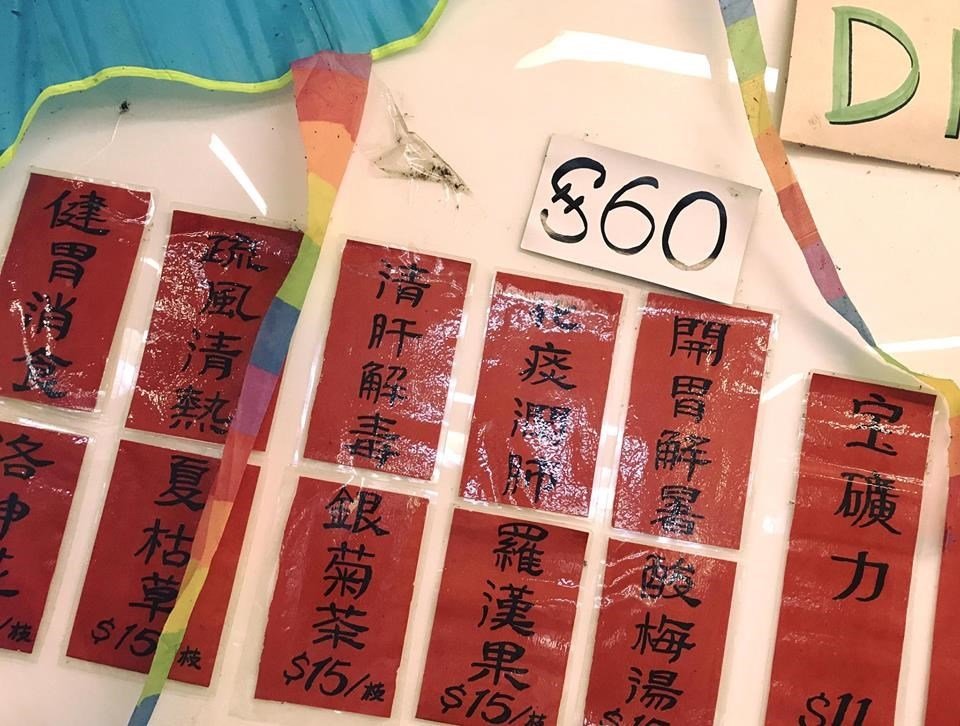 D
$60
健胃消食
疏風清熱
清肝解毒
化痰潤肺
開胃解暑
宝礦力
$11
洛神花
/枝
夏枯草
$15 枝
銀菊茶
$15/枝
羅漢果
$15/枝
酸梅湯
$15